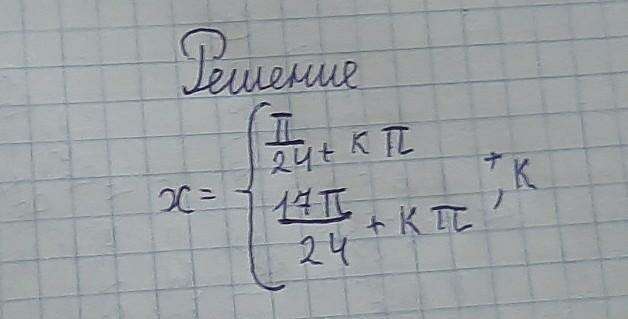 Решение
x = { π/24 + K π
17π/24 + K π +, K